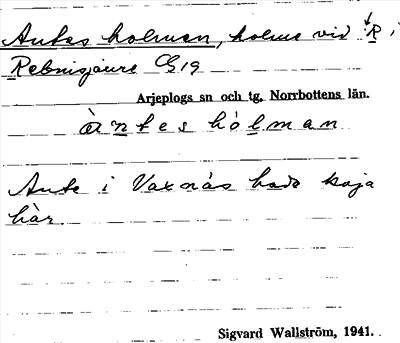 Antes holmen, holme vid R i
Rebnisjaure G19
Arjeplogs sn och tg, Norrbottens län.
àntes hòlman
Ante i Vaxnäs hade koja
här.
Sigvard Wallström, 1941.